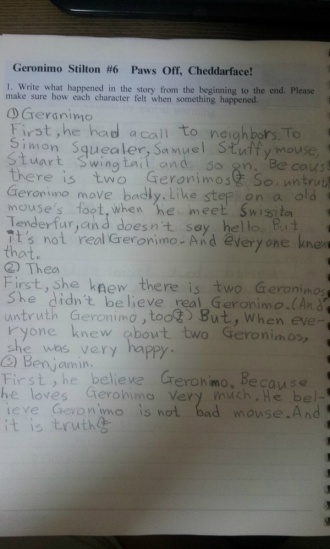 Geronimo Stilton #6 Paws Off, Cheddarface!
1. Write what happened in the story from the beginning to the end. Please
make sure how each character felt when something happened.
① Geronimo
First, he had a call to neighbors. To
Simon Squealer, Samuel Stuffy mouse,
Stuart Swingtail and so on. Becaus
there is two Geronimos. So, untrut
Geronimo move badly. Like step on a old
mouse's foot, when he meet Swissita
Tenderfur, and doesn't say hello. But
it's not real Geronimo. And everyone knew
that.
② Thea
First, she knew there is two Geronimos
She didn't believe real Geronimo. (And
untruth Geronimo, too) But, When eve-
ryone knew about two Geronimos,
she was very happy.
③ Benjamin.
First, he believe Geronimo. Because
he loves Geronimo very much. He bel-
ieve Geronimo is not bad mouse. And
it is truth